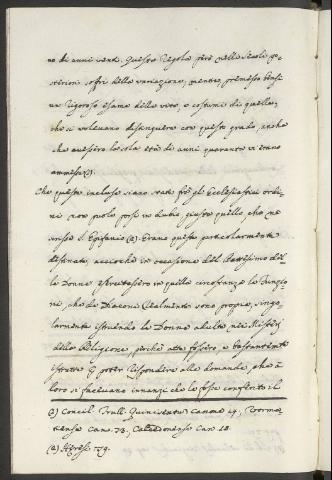 no di anni venti. Questa Regola però nelli secoli po-
steriori soffrì delle variazioni, mentre, premesso bensì
un rigoroso esame della vita, e costumi di quelle,
che si volevano distinguere con questo grado, anche
che avessero la sola età di anni quaranta vi erano
ammesse (1).
Che queste incluse siano state frà gl'Ecclesiastici ordi-
ni non puole porsi in dubio giusto quello, che ne
scrisse S. Epifanio (2). Erano queste particolarmente
destinate, acciochè in occasione del Battesimo del-
le Donne esercitassero in quelle circostanze le Funzio-
ni, che de Diaconi realmente sono proprie, singo-
larmente istruendo le Donne adulte nei Misterj
della Religione, perchè atte fossero, e bastantemente
istrutte p. poter rispondere alle domande, che à
loro si facevano innanzi che le fosse conferito il
(1) Concil. Trull. Quinisextum Canone 14, Worma-
tiense Can. 73, Calcedonense Can. 15.
(2) Hæres. 79.